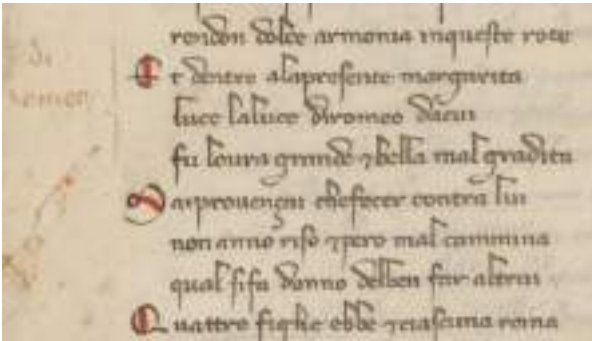 rendon dolce armonia inqueste rote
Et dentro alapresente margarita
luce laluce diromeo dicui
fu loura grande ⁊ bella mal gradita
Maiprouençai chefecer contra lui
non anno riso ⁊pero mal cammina
qual sifa danno delben far altrui
Quattro figlie ebbe ⁊ciascuna reina